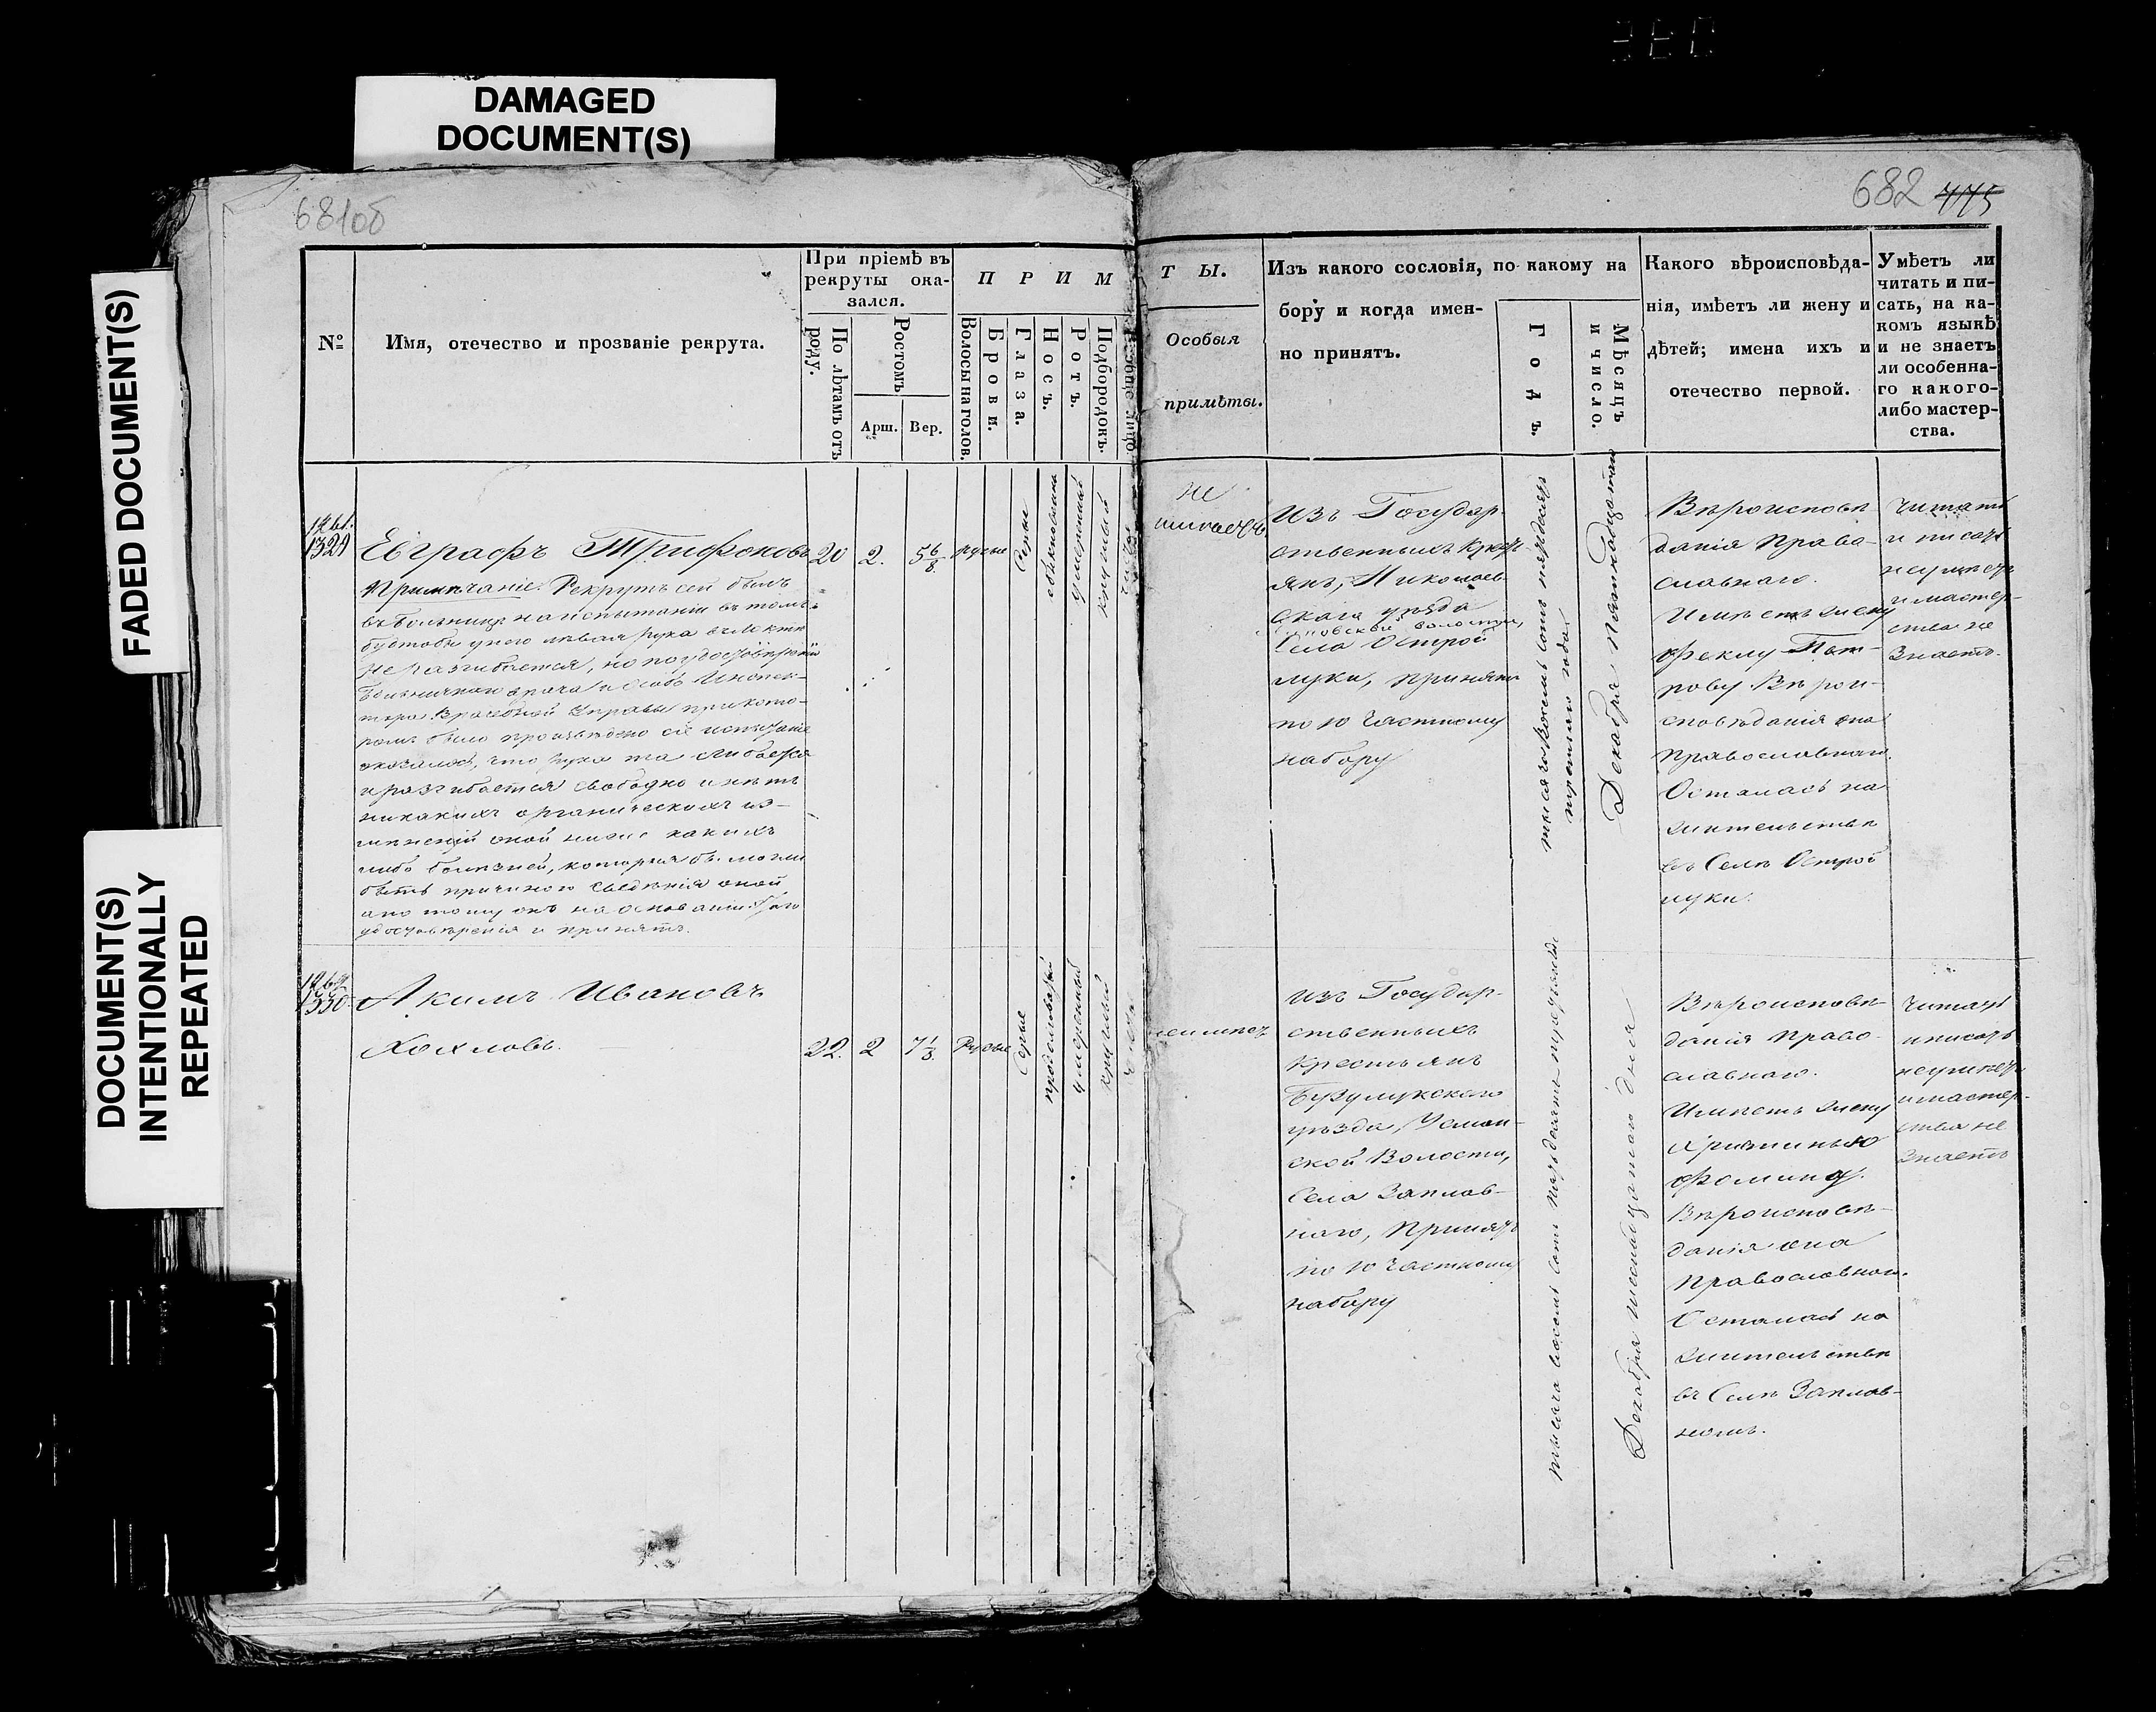 DAMAGED
DOCUMENT(S)
FADED DOCUMENT(S)
DOCUMENT(S)
INTENTIONALLY
REPEATED
681об
682 775
№
Имя, отечество и прозваніе рекрута.
При пріемѣ въ
рекруты ока-
зался.
По лѣтамъ отъ
роду.
Ростомъ
Арш.
Вер.
П Р И М
Волосы на голов.
Брови.
Глаза.
Носъ.
Ротъ.
Подбородокъ.
Вообще лицо.
Т Ы.
Особыя
примѣты.
Изъ какого сословія, по какому на
бору и когда имен-
но принятъ.
Годъ.
Мѣсяцъ
и число.
Какого вѣроисповѣда-
нія, имѣетъ ли жену и
дѣтей; имена ихъ и
отечество первой.
Умѣетъ ли
читать и пи-
сать, на ка-
комъ языкѣ
и не знаетъ
ли особенна-
го какого-
либо мастер-
ства.
1329
Евграфъ Трифоновъ
Примѣчаніе. Рекрутъ сей былъ
въ больницѣ на испытаніи въ томъ
будтобы у него лѣвая рука въ локтѣ
не разгибается, но по удостовѣренію
больничнаго врача и Инспек-
тора Врачебной Управы при кото-
ромъ было произведено сіе испытаніе
оказалось, что рука та сгибается
и разгибается свободно и нѣтъ
никакихъ органическихъ из-
мѣненій оной ниже какихъ
либо болѣзней, которыя бы могли
быть причиною сведенія оной,
а по тому онъ на основаніи того
удостовѣренія и принятъ.
20
2.
5 6/8
русые
Серые
обыкновенный
умеренный
круглый
чистое
не
имеетъ
Изъ Государ-
ственныхъ крес
янъ, Николаев-
скаго уѣзда
волости,
Села Острой
луки, принятъ
по 10 частному
набору
тысяча восемь сотъ пятьдесятъ
третьяго года
Декабря пятнадцатаго
Вѣроисповѣ
данія Право-
славнаго.
Имѣетъ жену
Феклу Пет-
рову. Вѣрои-
сповѣданія она
Православнаго.
Осталась на
жительствѣ
въ Селѣ Острой
луки.
Читать
и писать
неумѣетъ
и мастер-
ства не
знаетъ.
1330
Акимъ Ивановъ
Хохловъ.
22.
2
7 1/8
Русые
Серые
продолговатый
умеренный
круглый
чистое
неимѣетъ
Изъ Государ-
ственныхъ
Крестьянъ
Бузулукскаго
уѣзда, Усман-
ской Волости,
Села Заплав-
наго, Принятъ
по 10 частному
набору
тысяча восемь сотъ пятьдесятъ третьяго
Декабря шеснадцатаго дня
Вѣроисповѣ-
данія Право-
славнаго.
Имѣетъ жену
Христинью
Фомину.
Вѣроисповѣ-
данія она
Православнаго.
Осталась на
жительствѣ
въ Селѣ Заплав-
номъ.
Читать
и писать
неумѣетъ
и мастер-
ства не
знаетъ